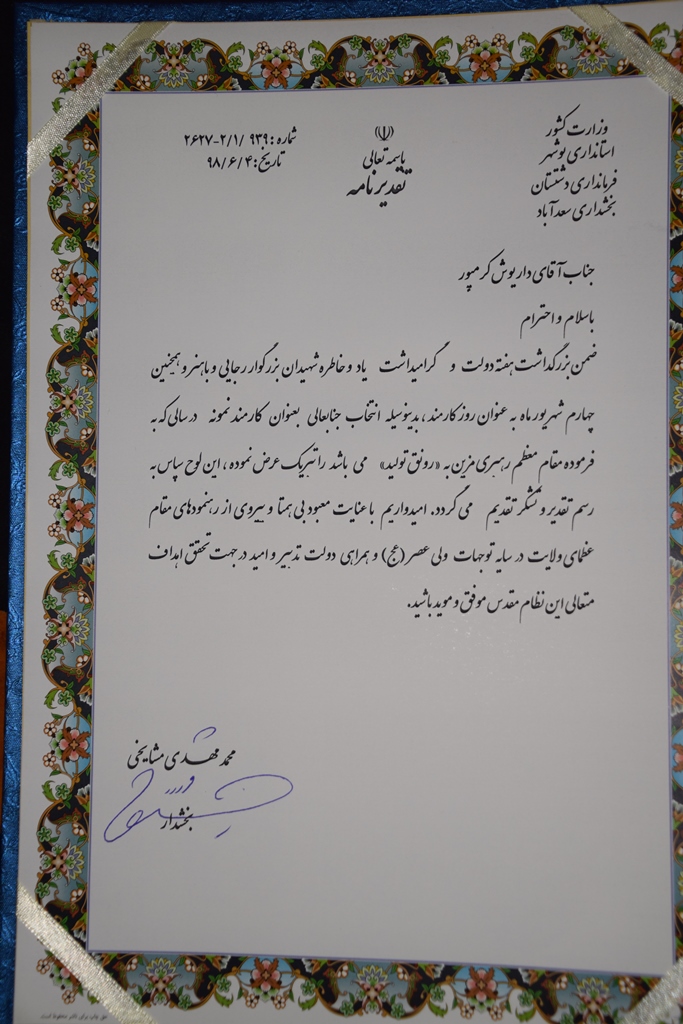 وزارت کشور
استانداری بوشهر
فرمانداری دشتستان
بخشداری سعدآباد
باسمه تعالی
تقدیرنامه
شماره: ۹۳۹ /۲/۱-۲۶۲۷
تاریخ: ۹۸/۶/۴
جناب آقای داریوش کرمپور
باسلام و احترام
ضمن بزرگداشت هفته دولت و گرامیداشت یاد و خاطره شهیدان بزرگوار رجایی و باهنر و همچنین
چهارم شهریور ماه به عنوان روز کارمند، بدینوسیله انتخاب جنابعالی بعنوان کارمند نمونه در سالی که به
فرموده مقام معظم رهبری مزین به «رونق تولید» می باشد را تبریک عرض نموده، این لوح سپاس به
رسم تقدیر و تشکر تقدیم می گردد. امیدواریم با عنایت معبود بی همتا و پیروی از رهنمودهای مقام
عظمای ولایت در سایه توجهات ولی عصر (عج) و همراهی دولت تدبیر و امید در جهت تحقق اهداف
متعالی این نظام مقدس موفق و موید باشید.
محمد مهدی مشایخی
بخشدار
حق چاپ برای ناشر محفوظ است